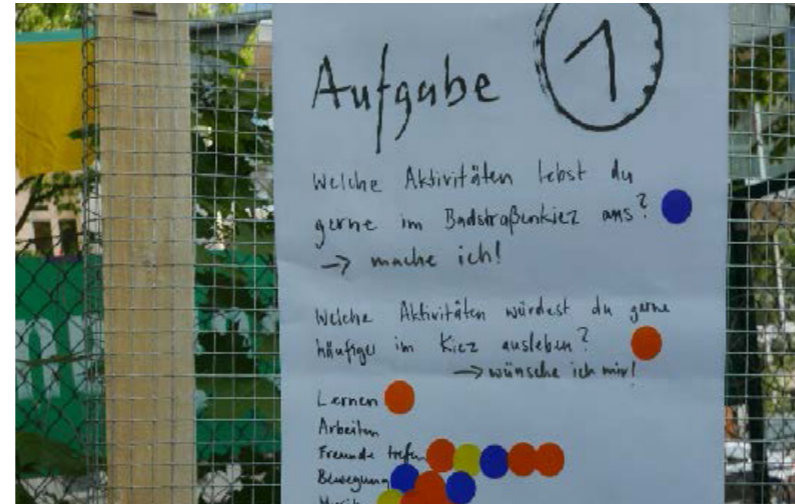 Aufgabe 1
Welche Aktivitäten lebst du
gerne im Badstraßenkiez aus?
→ mache ich!
Welche Aktivitäten würdest du gerne
häufiger im Kiez ausleben?
→ wünsche ich mir!
Lernen
Arbeiten
Freunde treffen
Bewegung